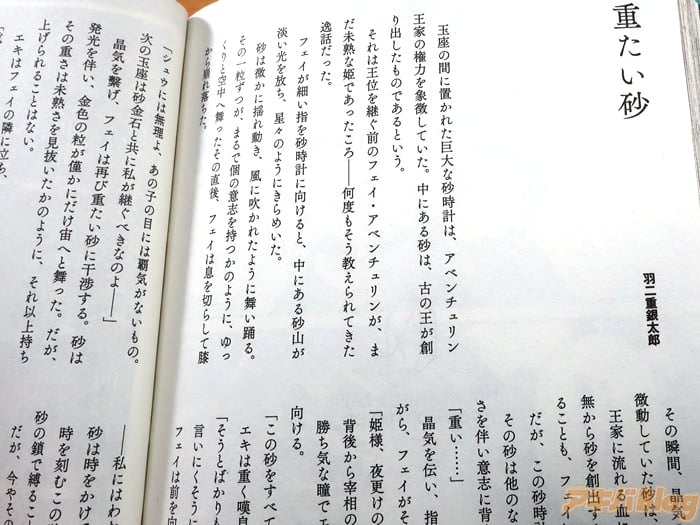 重たい砂
羽二重銀太郎
玉座の間に置かれた巨大な砂時計は、アベンチュリン
王家の権力を象徴していた。中にある砂は、古の王が創
り出したものであるという。
それは王位を継ぐ前のフェイ・アベンチュリンが、ま
だ未熟な姫であったころ――何度もそう教えられてきた
逸話だった。
フェイが細い指を砂時計に向けると、中にある砂山が
淡い光を放ち、星々のようにきらめいた。
砂は微かに揺れ動き、風に吹かれたように舞い踊る。
その一粒ずつが、まるで個の意志を持つかのように、ゆっ
くりと空中へ舞ったその直後、フェイは息を切らして膝
から崩れ落ちた。
「シュウには無理よ、あの子の目には覇気がないもの。
次の玉座は砂金石と共に私が継ぐべきなのよ――」
晶気を繋げ、フェイは再び重たい砂に干渉する。砂は
発光を伴い、金色の粒が僅かにだけ宙へと舞った。だが、
その重さは未熟さを見抜いたかのように、それ以上持ち
上げられることはない。
エキはフェイの隣に立ち、
その瞬間、晶気
微動していた砂は
王家に流れる血
無から砂を創出す
ることも、フェ
だが、この砂時
その砂は他のな
さを伴い意志に背
「重い……」
晶気を伝い、指
がら、フェイがそ
「姫様、夜更けの
背後から宰相の
勝ち気な瞳でエ
向ける。
「この砂をすべて
エキは重く嘆息
「そうとばかりも
言いにくそうに
フェイは前を向
――私にはわか
砂は時をかける
時を刻むこの
砂の鎖で縛るこ
だが、今やその
アキバBlog